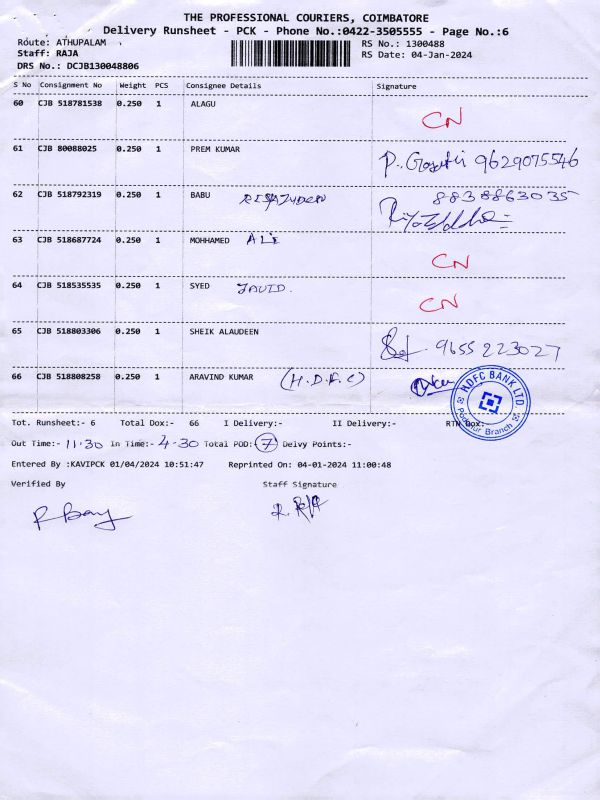 THE PROFESSIONAL COURIERS, COIMBATORE
Delivery Runsheet - PCK - Phone No.:0422-3505555 - Page No.:6
Route: ATHUPALAM
Staff: RAJA
DRS No.: DCJB130048806
RS No.: 1300488
RS Date: 04-Jan-2024
S No Consignment No Weight PCS Consignee Details Signature
60 CJB 518781538 0.250 1 ALAGU CN
61 CJB 80088025 0.250 1 PREM KUMAR 9629075546
62 CJB 518792319 0.250 1 BABU 8838863035
63 CJB 518687724 0.250 1 MOHHAMED ALI CN
64 CJB 518535535 0.250 1 SYED JAVID. CN
65 CJB 518803306 0.250 1 SHEIK ALAUDEEN 9655223027
66 CJB 518808258 0.250 1 ARAVIND KUMAR (H.D.F.C)
HDFC BANK LTD.
Branch
Tot. Runsheet:- 6 Total Dox:- 66 I Delivery:- II Delivery:- RTN Dox:-
Out Time:- 11.30 In Time:- 4-30 Total POD: 7 Delvy Points:-
Entered By :KAVIPCK 01/04/2024 10:51:47 Reprinted On: 04-01-2024 11:00:48
Verified By Staff Signature